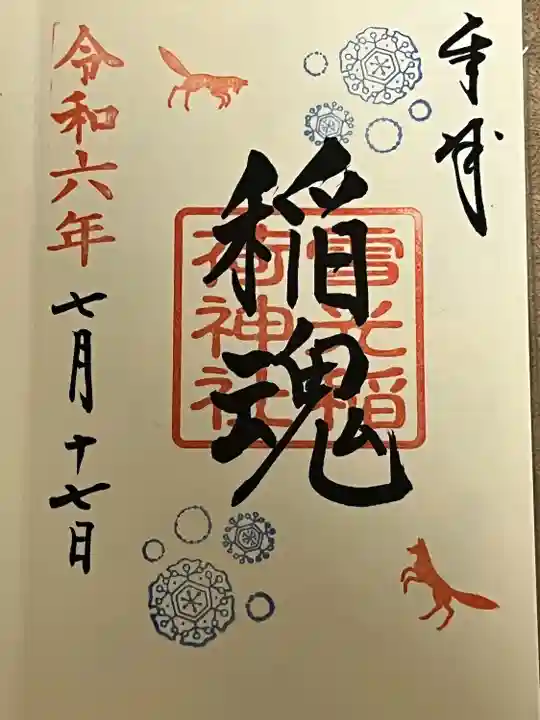 奉拝
稲魂
雪元稲
荷神社
令和六年
七月十七日